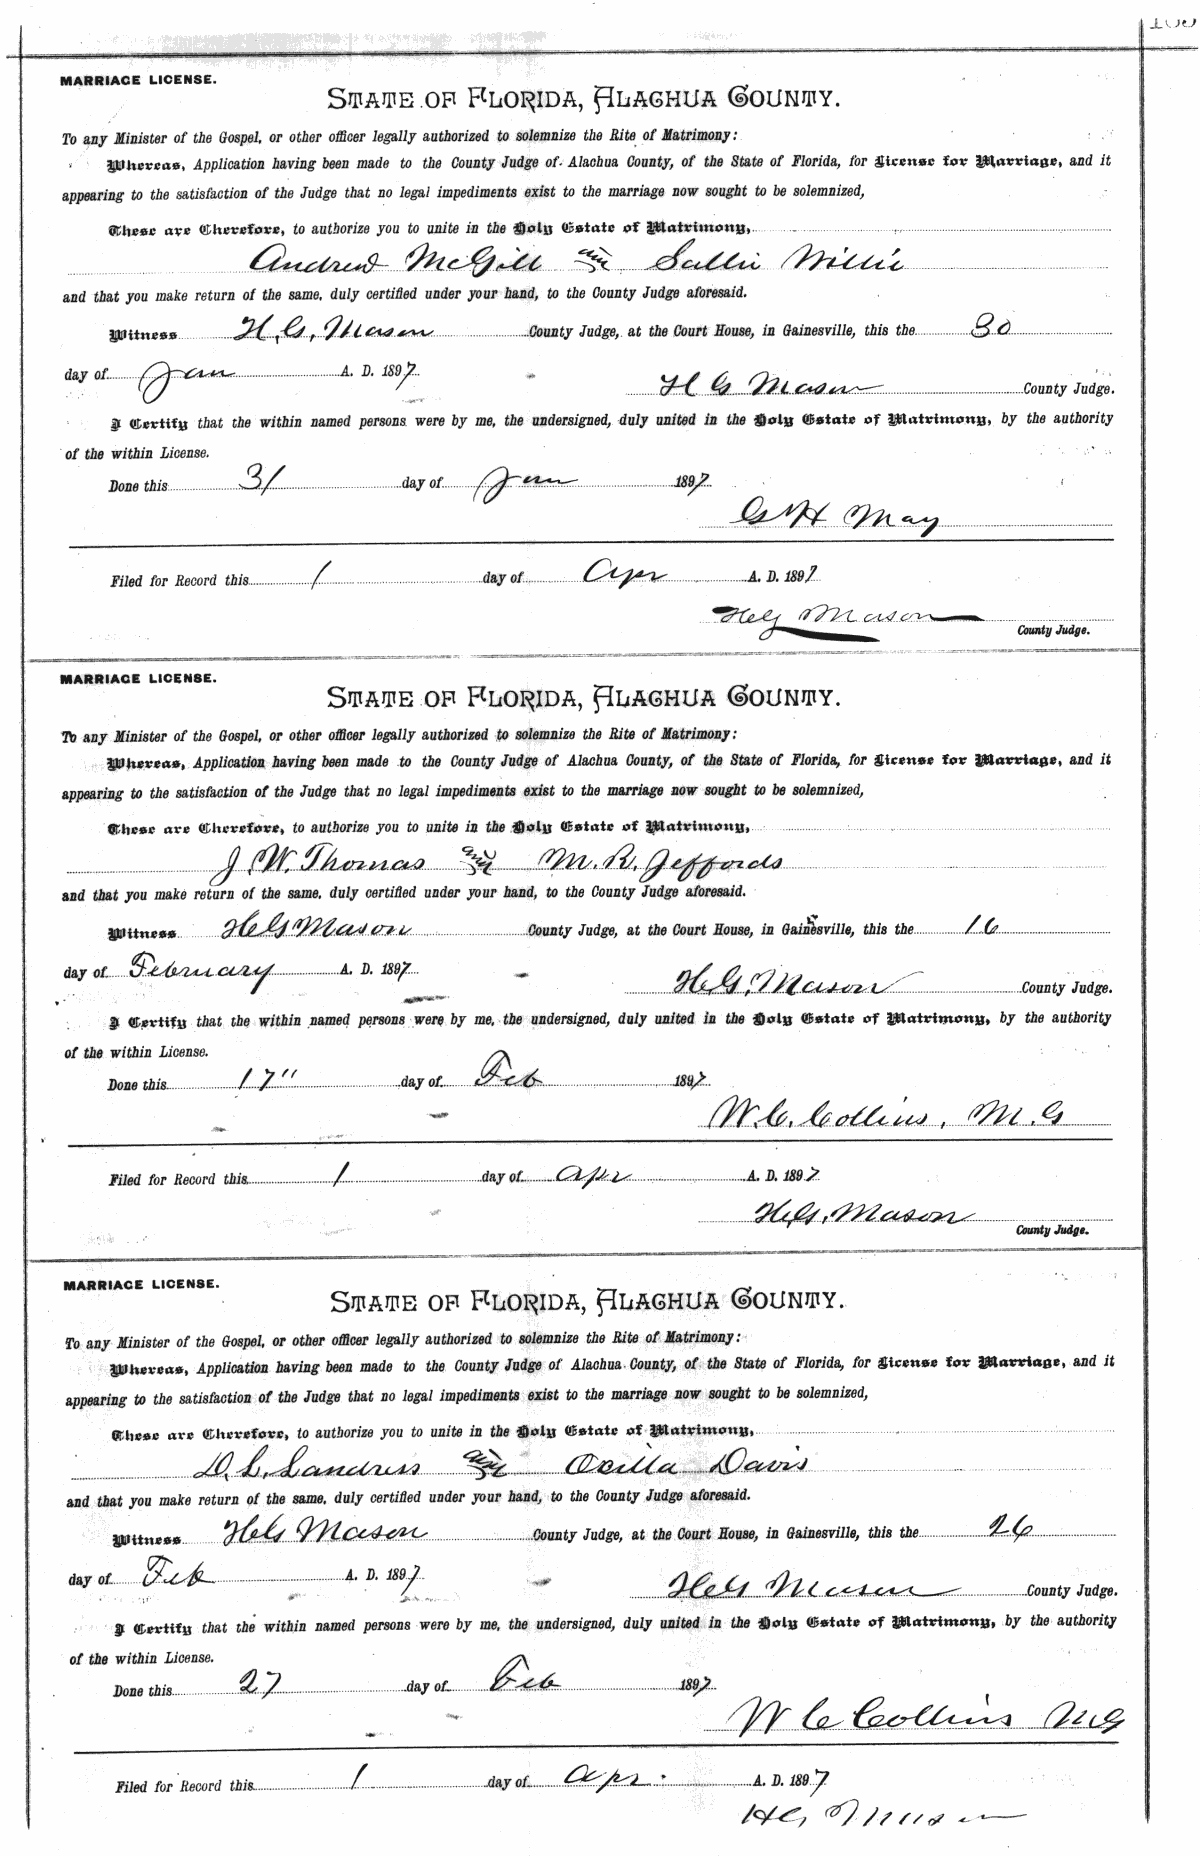 MARRIAGE LICENSE.
STATE OF FLORIDA, ALACHUA COUNTY.
To any Minister of the Gospel, or other officer legally authorized to solemnize the Rite of Matrimony:
Whereas, Application having been made to the County Judge of Alachua County, of the State of Florida, for License for Marriage, and it
appearing to the satisfaction of the Judge that no legal impediments exist to the marriage now sought to be solemnized,
These are Therefore, to authorize you to unite in the Holy Estate of Matrimony,
Andrew McGill and Sallie Willie
and that you make return of the same, duly certified under your hand, to the County Judge aforesaid.
Witness H. G. Mason County Judge, at the Court House, in Gainesville, this the 30
day of Jan A. D. 1897
H G Mason County Judge.
I Certify that the within named persons were by me, the undersigned, duly united in the Holy Estate of Matrimony, by the authority
of the within License.
Done this 31 day of Jan 1897
G H May
Filed for Record this 1 day of Apr A. D. 1897
H G Mason
County Judge.
MARRIAGE LICENSE.
STATE OF FLORIDA, ALACHUA COUNTY.
To any Minister of the Gospel, or other officer legally authorized to solemnize the Rite of Matrimony:
Whereas, Application having been made to the County Judge of Alachua County, of the State of Florida, for License for Marriage, and it
appearing to the satisfaction of the Judge that no legal impediments exist to the marriage now sought to be solemnized,
These are Therefore, to authorize you to unite in the Holy Estate of Matrimony,
J. W. Thomas and M. R. Jeffords
and that you make return of the same, duly certified under your hand, to the County Judge aforesaid.
Witness H G Mason County Judge, at the Court House, in Gainesville, this the 16
day of February A. D. 1897
H. G. Mason County Judge.
I Certify that the within named persons were by me, the undersigned, duly united in the Holy Estate of Matrimony, by the authority
of the within License.
Done this 17" day of Feb 1897
W. C. Collins, M. G
Filed for Record this 1 day of Apr A. D. 1897
H. G. Mason
County Judge.
MARRIAGE LICENSE.
STATE OF FLORIDA, ALACHUA COUNTY.
To any Minister of the Gospel, or other officer legally authorized to solemnize the Rite of Matrimony:
Whereas, Application having been made to the County Judge of Alachua County, of the State of Florida, for License for Marriage, and it
appearing to the satisfaction of the Judge that no legal impediments exist to the marriage now sought to be solemnized,
These are Therefore, to authorize you to unite in the Holy Estate of Matrimony,
D. L. Landress and Ocilla Davis
and that you make return of the same, duly certified under your hand, to the County Judge aforesaid.
Witness H G Mason County Judge, at the Court House, in Gainesville, this the 26
day of Feb A. D. 1897
H G Mason County Judge.
I Certify that the within named persons were by me, the undersigned, duly united in the Holy Estate of Matrimony, by the authority
of the within License.
Done this 27 day of Feb 1897
W C Collins M G
Filed for Record this 1 day of Apr. A. D. 1897
H G Mason